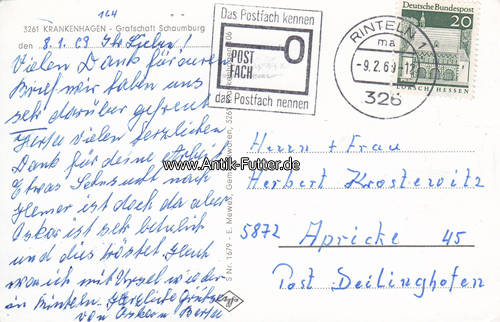 164
3261 KRANKENHAGEN - Grafschaft Schaumburg
den 8.2.69 Ihr Lieben!
Vielen Dank für euren
Brief wir haben uns
sehr darüber gefreut
Herta vielen herzlichen
Dank für deine Arbeit
Etwas Sehnsucht nach
Hemer ist doch da aber
Oskar ist sehr
und dies tröstet. Heute
war ich mit Ursel wieder
in Rinteln. Herzliche Grüße
von Oskar u. Berta
Das Postfach kennen
POST
FACH
das Postfach nennen
RINTELN 1
ma
-9.2.69-12
326
Deutsche Bundespost
20
LORSCH/HESSEN
www.Antik-Futter.de
Nr. 1679 - E. Mewes,
Herrn + Frau
Herbert Krosterwitz
5872 Apricke 45
Post Deilinghofen